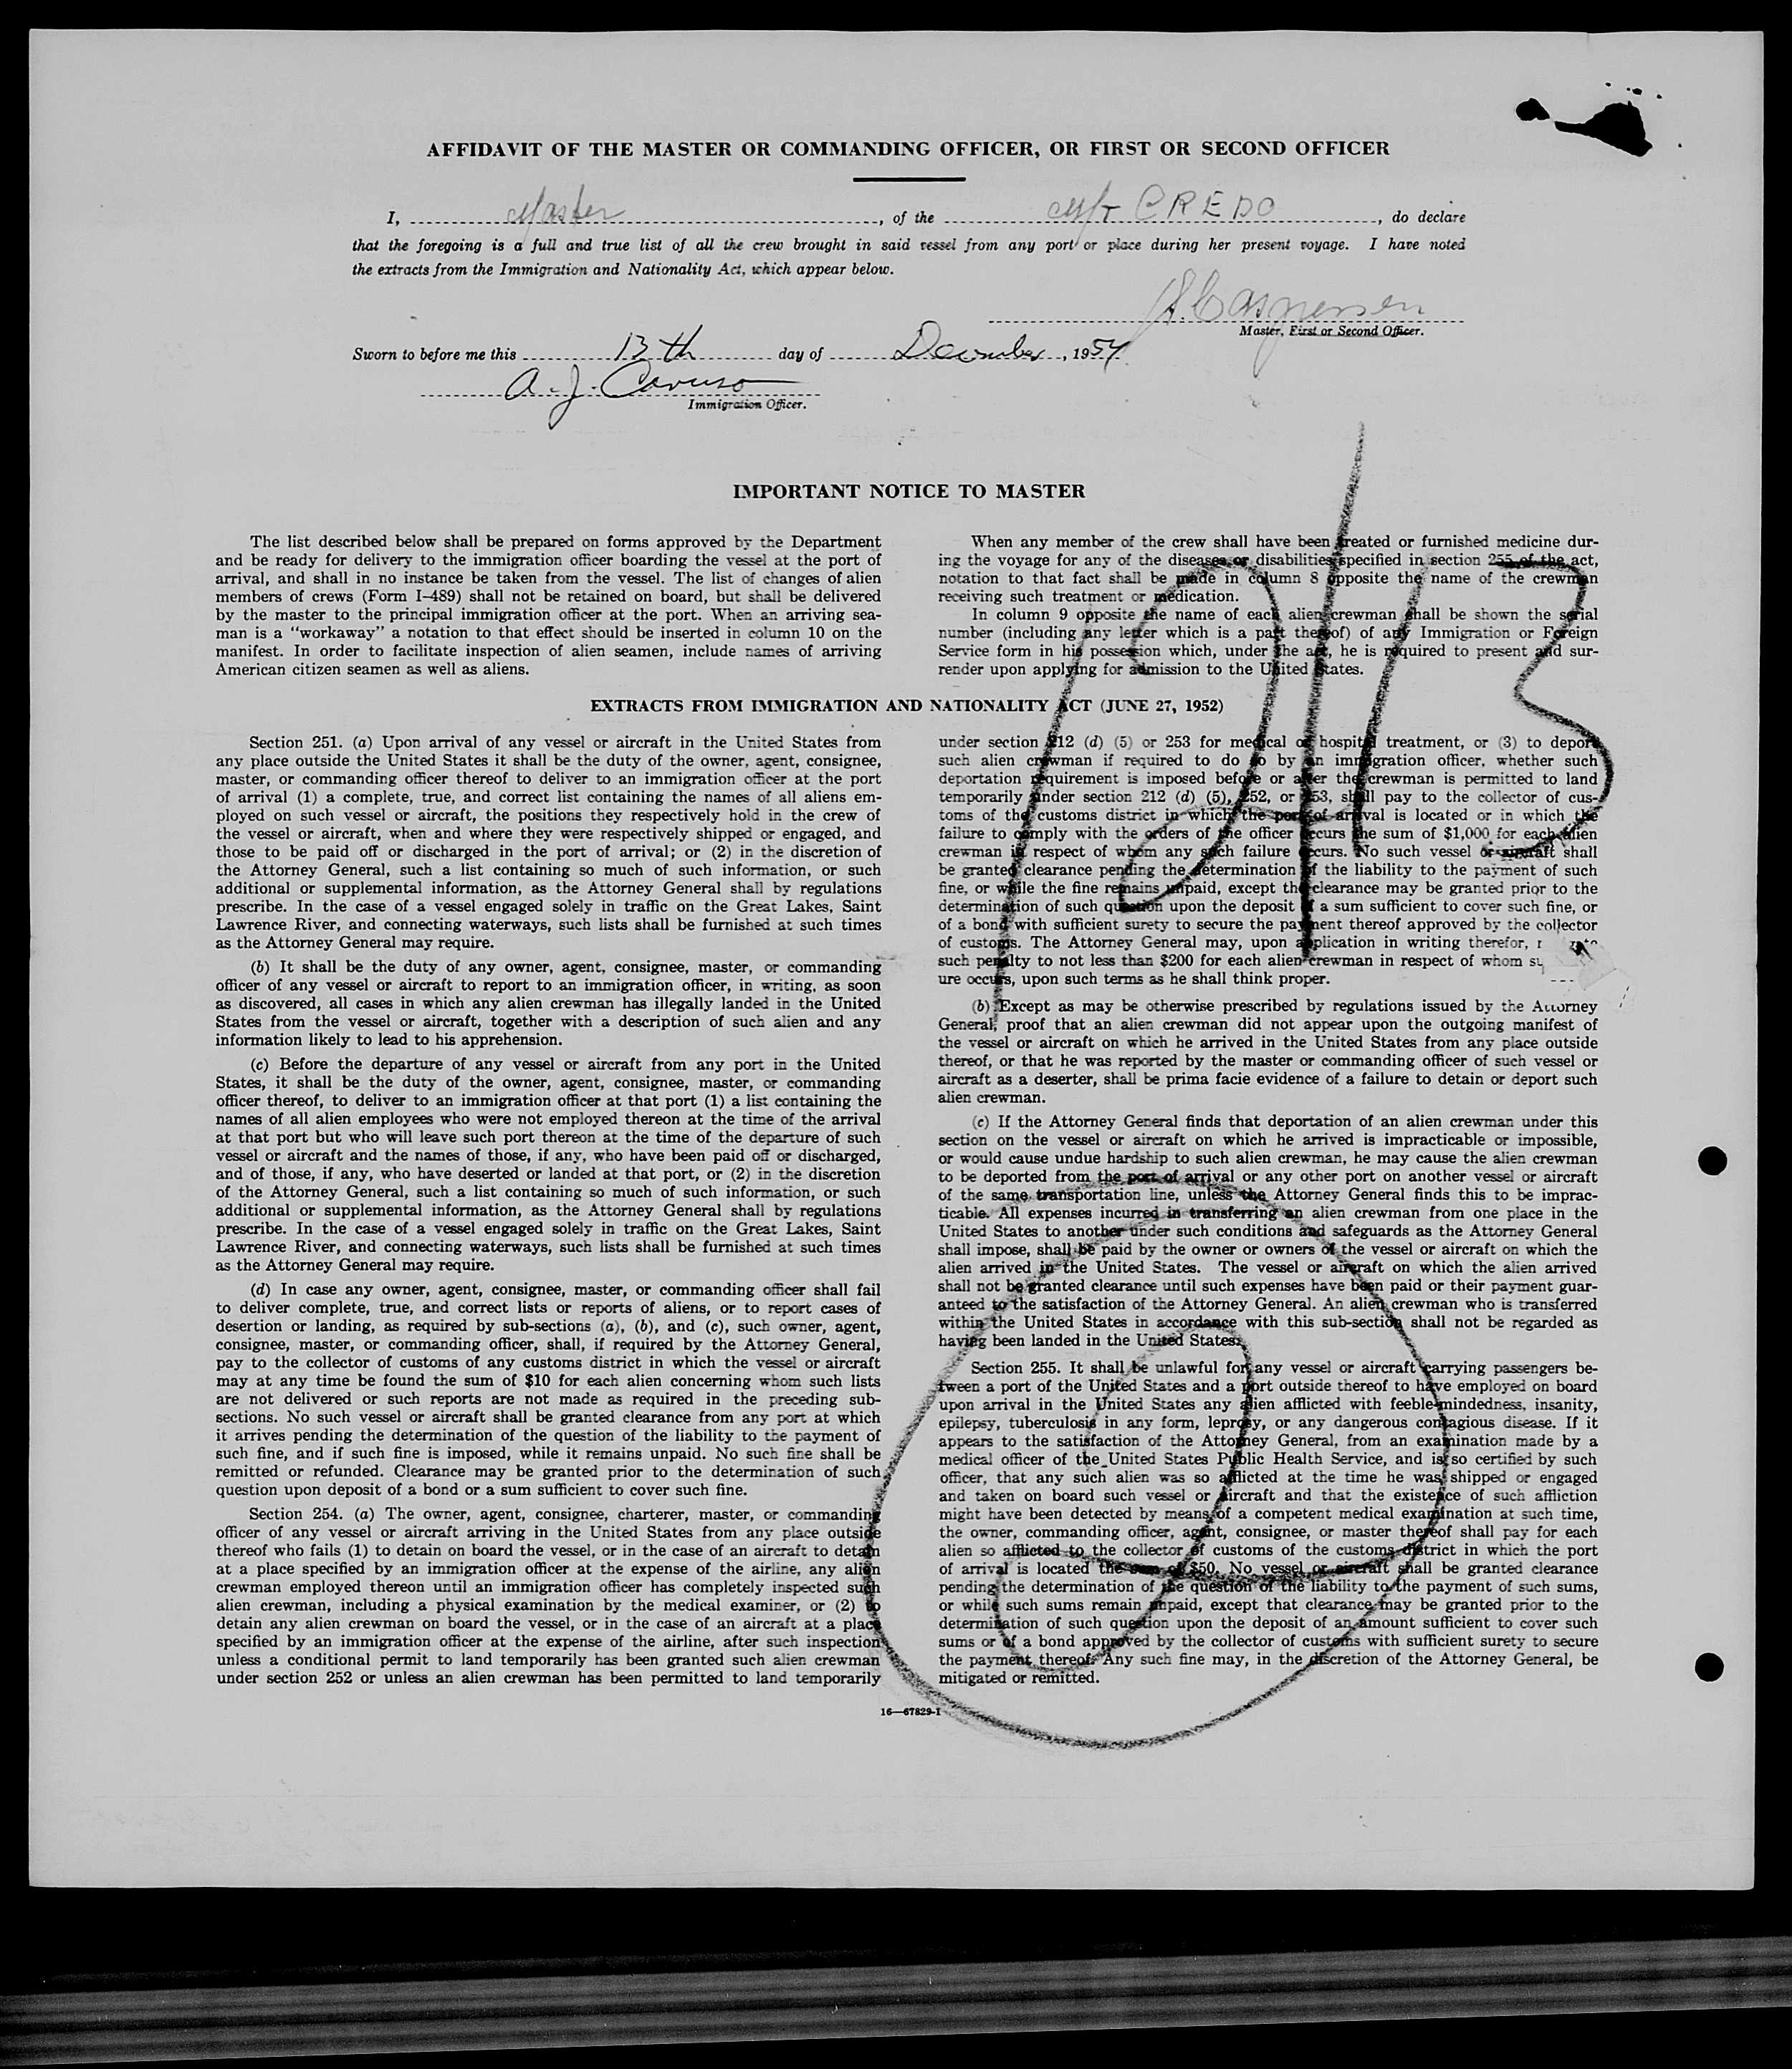 AFFIDAVIT OF THE MASTER OR COMMANDING OFFICER, OR FIRST OR SECOND OFFICER
I, Master, of the M/T CREDO, do declare
that the foregoing is a full and true list of all the crew brought in said vessel from any port or place during her present voyage. I have noted
the extracts from the Immigration and Nationality Act, which appear below.
Master, First or Second Officer.
Sworn to before me this 13th day of December, 1954
A. J. Caruso
Immigration Officer.
IMPORTANT NOTICE TO MASTER
The list described below shall be prepared on forms approved by the Department
and be ready for delivery to the immigration officer boarding the vessel at the port of
arrival, and shall in no instance be taken from the vessel. The list of changes of alien
members of crews (Form I–489) shall not be retained on board, but shall be delivered
by the master to the principal immigration officer at the port. When an arriving sea-
man is a "workaway" a notation to that effect should be inserted in column 10 on the
manifest. In order to facilitate inspection of alien seamen, include names of arriving
American citizen seamen as well as aliens.
When any member of the crew shall have been treated or furnished medicine dur-
ing the voyage for any of the diseases or disabilities specified in section 255 of the act,
notation to that fact shall be made in column 8 opposite the name of the crewman
receiving such treatment or medication.
In column 9 opposite the name of each alien crewman shall be shown the serial
number (including any letter which is a part thereof) of any Immigration or Foreign
Service form in his possession which, under the act, he is required to present and sur-
render upon applying for admission to the United States.
EXTRACTS FROM IMMIGRATION AND NATIONALITY ACT (JUNE 27, 1952)
Section 251. (a) Upon arrival of any vessel or aircraft in the United States from
any place outside the United States it shall be the duty of the owner, agent, consignee,
master, or commanding officer thereof to deliver to an immigration officer at the port
of arrival (1) a complete, true, and correct list containing the names of all aliens em-
ployed on such vessel or aircraft, the positions they respectively hold in the crew of
the vessel or aircraft, when and where they were respectively shipped or engaged, and
those to be paid off or discharged in the port of arrival; or (2) in the discretion of
the Attorney General, such a list containing so much of such information, or such
additional or supplemental information, as the Attorney General shall by regulations
prescribe. In the case of a vessel engaged solely in traffic on the Great Lakes, Saint
Lawrence River, and connecting waterways, such lists shall be furnished at such times
as the Attorney General may require.
(b) It shall be the duty of any owner, agent, consignee, master, or commanding
officer of any vessel or aircraft to report to an immigration officer, in writing, as soon
as discovered, all cases in which any alien crewman has illegally landed in the United
States from the vessel or aircraft, together with a description of such alien and any
information likely to lead to his apprehension.
(c) Before the departure of any vessel or aircraft from any port in the United
States, it shall be the duty of the owner, agent, consignee, master, or commanding
officer thereof, to deliver to an immigration officer at that port (1) a list containing the
names of all alien employees who were not employed thereon at the time of the arrival
at that port but who will leave such port thereon at the time of the departure of such
vessel or aircraft and the names of those, if any, who have been paid off or discharged,
and of those, if any, who have deserted or landed at that port, or (2) in the discretion
of the Attorney General, such a list containing so much of such information, or such
additional or supplemental information, as the Attorney General shall by regulations
prescribe. In the case of a vessel engaged solely in traffic on the Great Lakes, Saint
Lawrence River, and connecting waterways, such lists shall be furnished at such times
as the Attorney General may require.
(d) In case any owner, agent, consignee, master, or commanding officer shall fail
to deliver complete, true, and correct lists or reports of aliens, or to report cases of
desertion or landing, as required by sub-sections (a), (b), and (c), such owner, agent,
consignee, master, or commanding officer, shall, if required by the Attorney General,
pay to the collector of customs of any customs district in which the vessel or aircraft
may at any time be found the sum of $10 for each alien concerning whom such lists
are not delivered or such reports are not made as required in the preceding sub-
sections. No such vessel or aircraft shall be granted clearance from any port at which
it arrives pending the determination of the question of the liability to the payment of
such fine, and if such fine is imposed, while it remains unpaid. No such fine shall be
remitted or refunded. Clearance may be granted prior to the determination of such
question upon deposit of a bond or a sum sufficient to cover such fine.
Section 254. (a) The owner, agent, consignee, charterer, master, or commanding
officer of any vessel or aircraft arriving in the United States from any place outside
thereof who fails (1) to detain on board the vessel, or in the case of an aircraft to detain
at a place specified by an immigration officer at the expense of the airline, any alien
crewman employed thereon until an immigration officer has completely inspected such
alien crewman, including a physical examination by the medical examiner, or (2) to
detain any alien crewman on board the vessel, or in the case of an aircraft at a place
specified by an immigration officer at the expense of the airline, after such inspection
unless a conditional permit to land temporarily has been granted such alien crewman
under section 252 or unless an alien crewman has been permitted to land temporarily
under section 212 (d) (5) or 253 for medical or hospital treatment, or (3) to deport
such alien crewman if required to do so by an immigration officer, whether such
deportation requirement is imposed before or after the crewman is permitted to land
temporarily under section 212 (d) (5), 252, or 253, shall pay to the collector of cus-
toms of the customs district in which the port of arrival is located or in which the
failure to comply with the orders of the officer occurs the sum of $1,000 for each alien
crewman in respect of whom any such failure occurs. No such vessel or aircraft shall
be granted clearance pending the determination of the liability to the payment of such
fine, or while the fine remains unpaid, except that clearance may be granted prior to the
determination of such question upon the deposit of a sum sufficient to cover such fine, or
of a bond with sufficient surety to secure the payment thereof approved by the collector
of customs. The Attorney General may, upon application in writing therefor,
such penalty to not less than $200 for each alien crewman in respect of whom
ure occurs, upon such terms as he shall think proper.
(b) Except as may be otherwise prescribed by regulations issued by the Attorney
General, proof that an alien crewman did not appear upon the outgoing manifest of
the vessel or aircraft on which he arrived in the United States from any place outside
thereof, or that he was reported by the master or commanding officer of such vessel or
aircraft as a deserter, shall be prima facie evidence of a failure to detain or deport such
alien crewman.
(c) If the Attorney General finds that deportation of an alien crewman under this
section on the vessel or aircraft on which he arrived is impracticable or impossible,
or would cause undue hardship to such alien crewman, he may cause the alien crewman
to be deported from the port of arrival or any other port on another vessel or aircraft
of the same transportation line, unless the Attorney General finds this to be imprac-
ticable. All expenses incurred in transferring an alien crewman from one place in the
United States to another under such conditions and safeguards as the Attorney General
shall impose, shall be paid by the owner or owners of the vessel or aircraft on which the
alien arrived in the United States. The vessel or aircraft on which the alien arrived
shall not be granted clearance until such expenses have been paid or their payment guar-
anteed to the satisfaction of the Attorney General. An alien crewman who is transferred
within the United States in accordance with this sub-section shall not be regarded as
having been landed in the United States.
Section 255. It shall be unlawful for any vessel or aircraft carrying passengers be-
tween a port of the United States and a port outside thereof to have employed on board
upon arrival in the United States any alien afflicted with feeble-mindedness, insanity,
epilepsy, tuberculosis in any form, leprosy, or any dangerous contagious disease. If it
appears to the satisfaction of the Attorney General, from an examination made by a
medical officer of the United States Public Health Service, and is so certified by such
officer, that any such alien was so afflicted at the time he was shipped or engaged
and taken on board such vessel or aircraft and that the existence of such affliction
might have been detected by means of a competent medical examination at such time,
the owner, commanding officer, agent, consignee, or master thereof shall pay for each
alien so afflicted to the collector of customs of the customs district in which the port
of arrival is located the sum of $50. No vessel or aircraft shall be granted clearance
pending the determination of the question of the liability to the payment of such sums,
or while such sums remain unpaid, except that clearance may be granted prior to the
determination of such question upon the deposit of an amount sufficient to cover such
sums or of a bond approved by the collector of customs with sufficient surety to secure
the payment thereof. Any such fine may, in the discretion of the Attorney General, be
mitigated or remitted.
16—67829-1
12/13
2